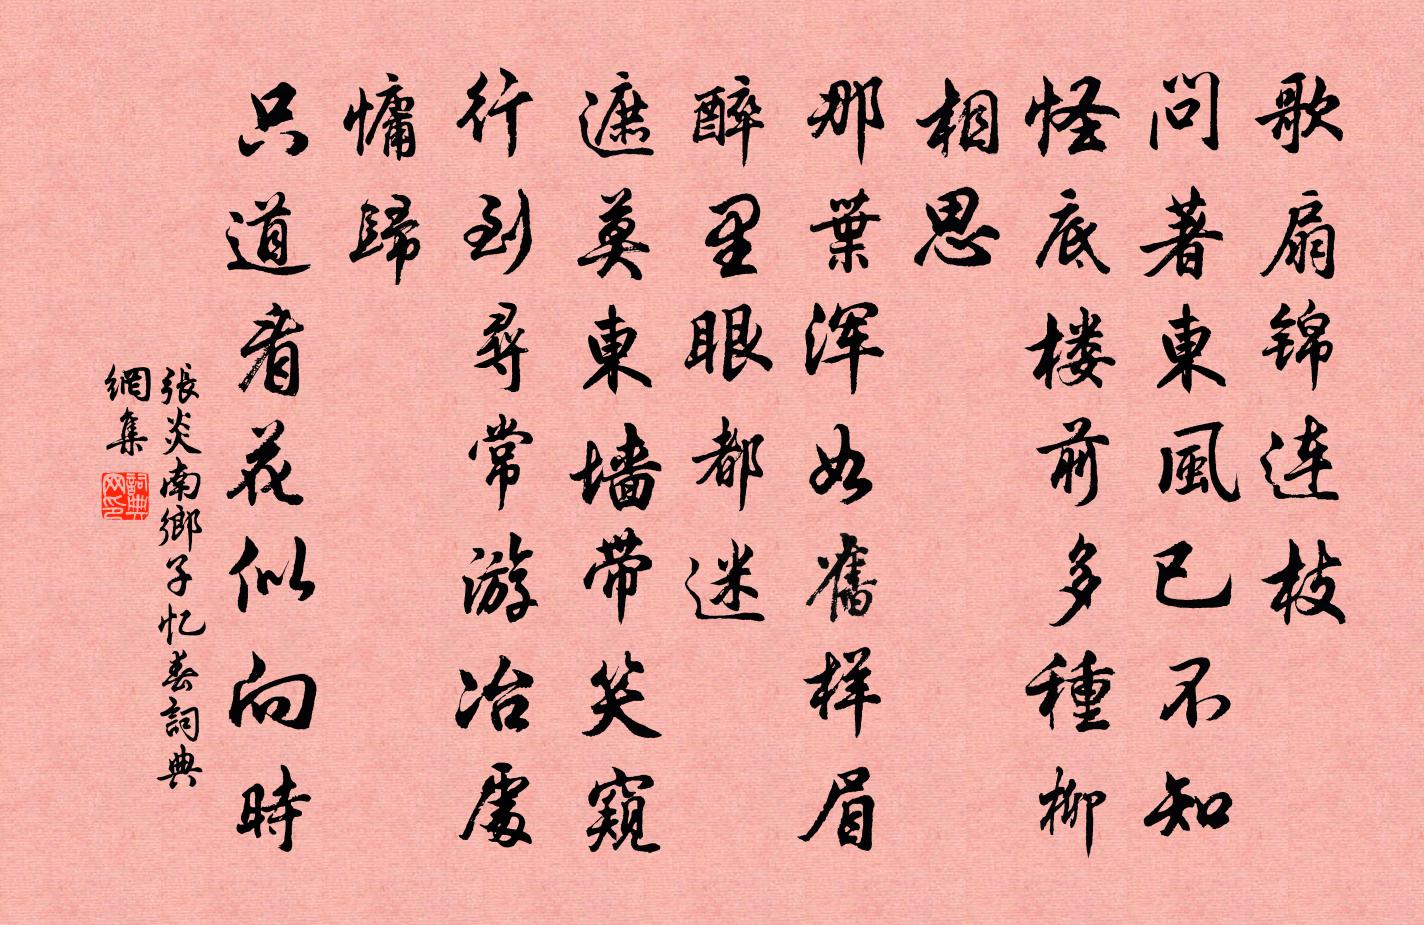 歌扇锦连枝
问著東風已不知
怪底楼前多種柳
相思
那葉浑如舊样眉
醉里眼都迷
遮莫東墙带笑窺
行到尋常游冶處
慵歸
只道看花似向時
張炎南鄉子忆春詞典
網集
詞典
网印